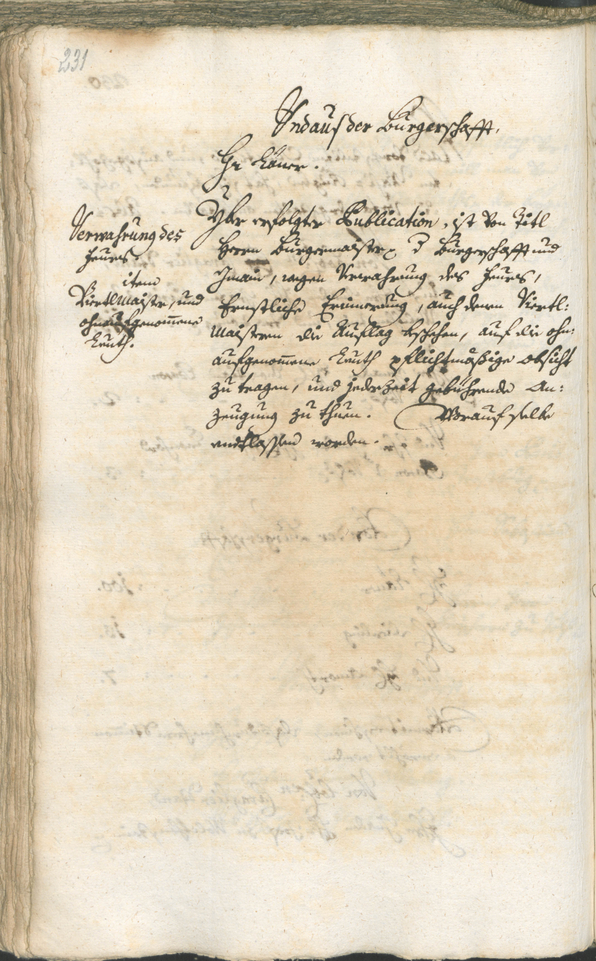 231
Und aus der Burgerschafft.
Hr. Känér.
Verwahrung des
Feures,
item
Viertlmaister, und
ohnaufgenommene
Leuth.
Yber erfolgte Publication, ist von Titl
Herrn Burgermaister, d Burgerschafft und
Gmain, wegen Verwahrung des Feures,
Ernstliche Erinerung, auch denen Viertl:
maistern die Auflag beschehen, auf die ohn:
aufgenommene Leuth pflichtmäßige obsicht
zu tragen, und jederzeit gebührende An:
zeugung zu thuen. Worauf selbe
entlassen worden.